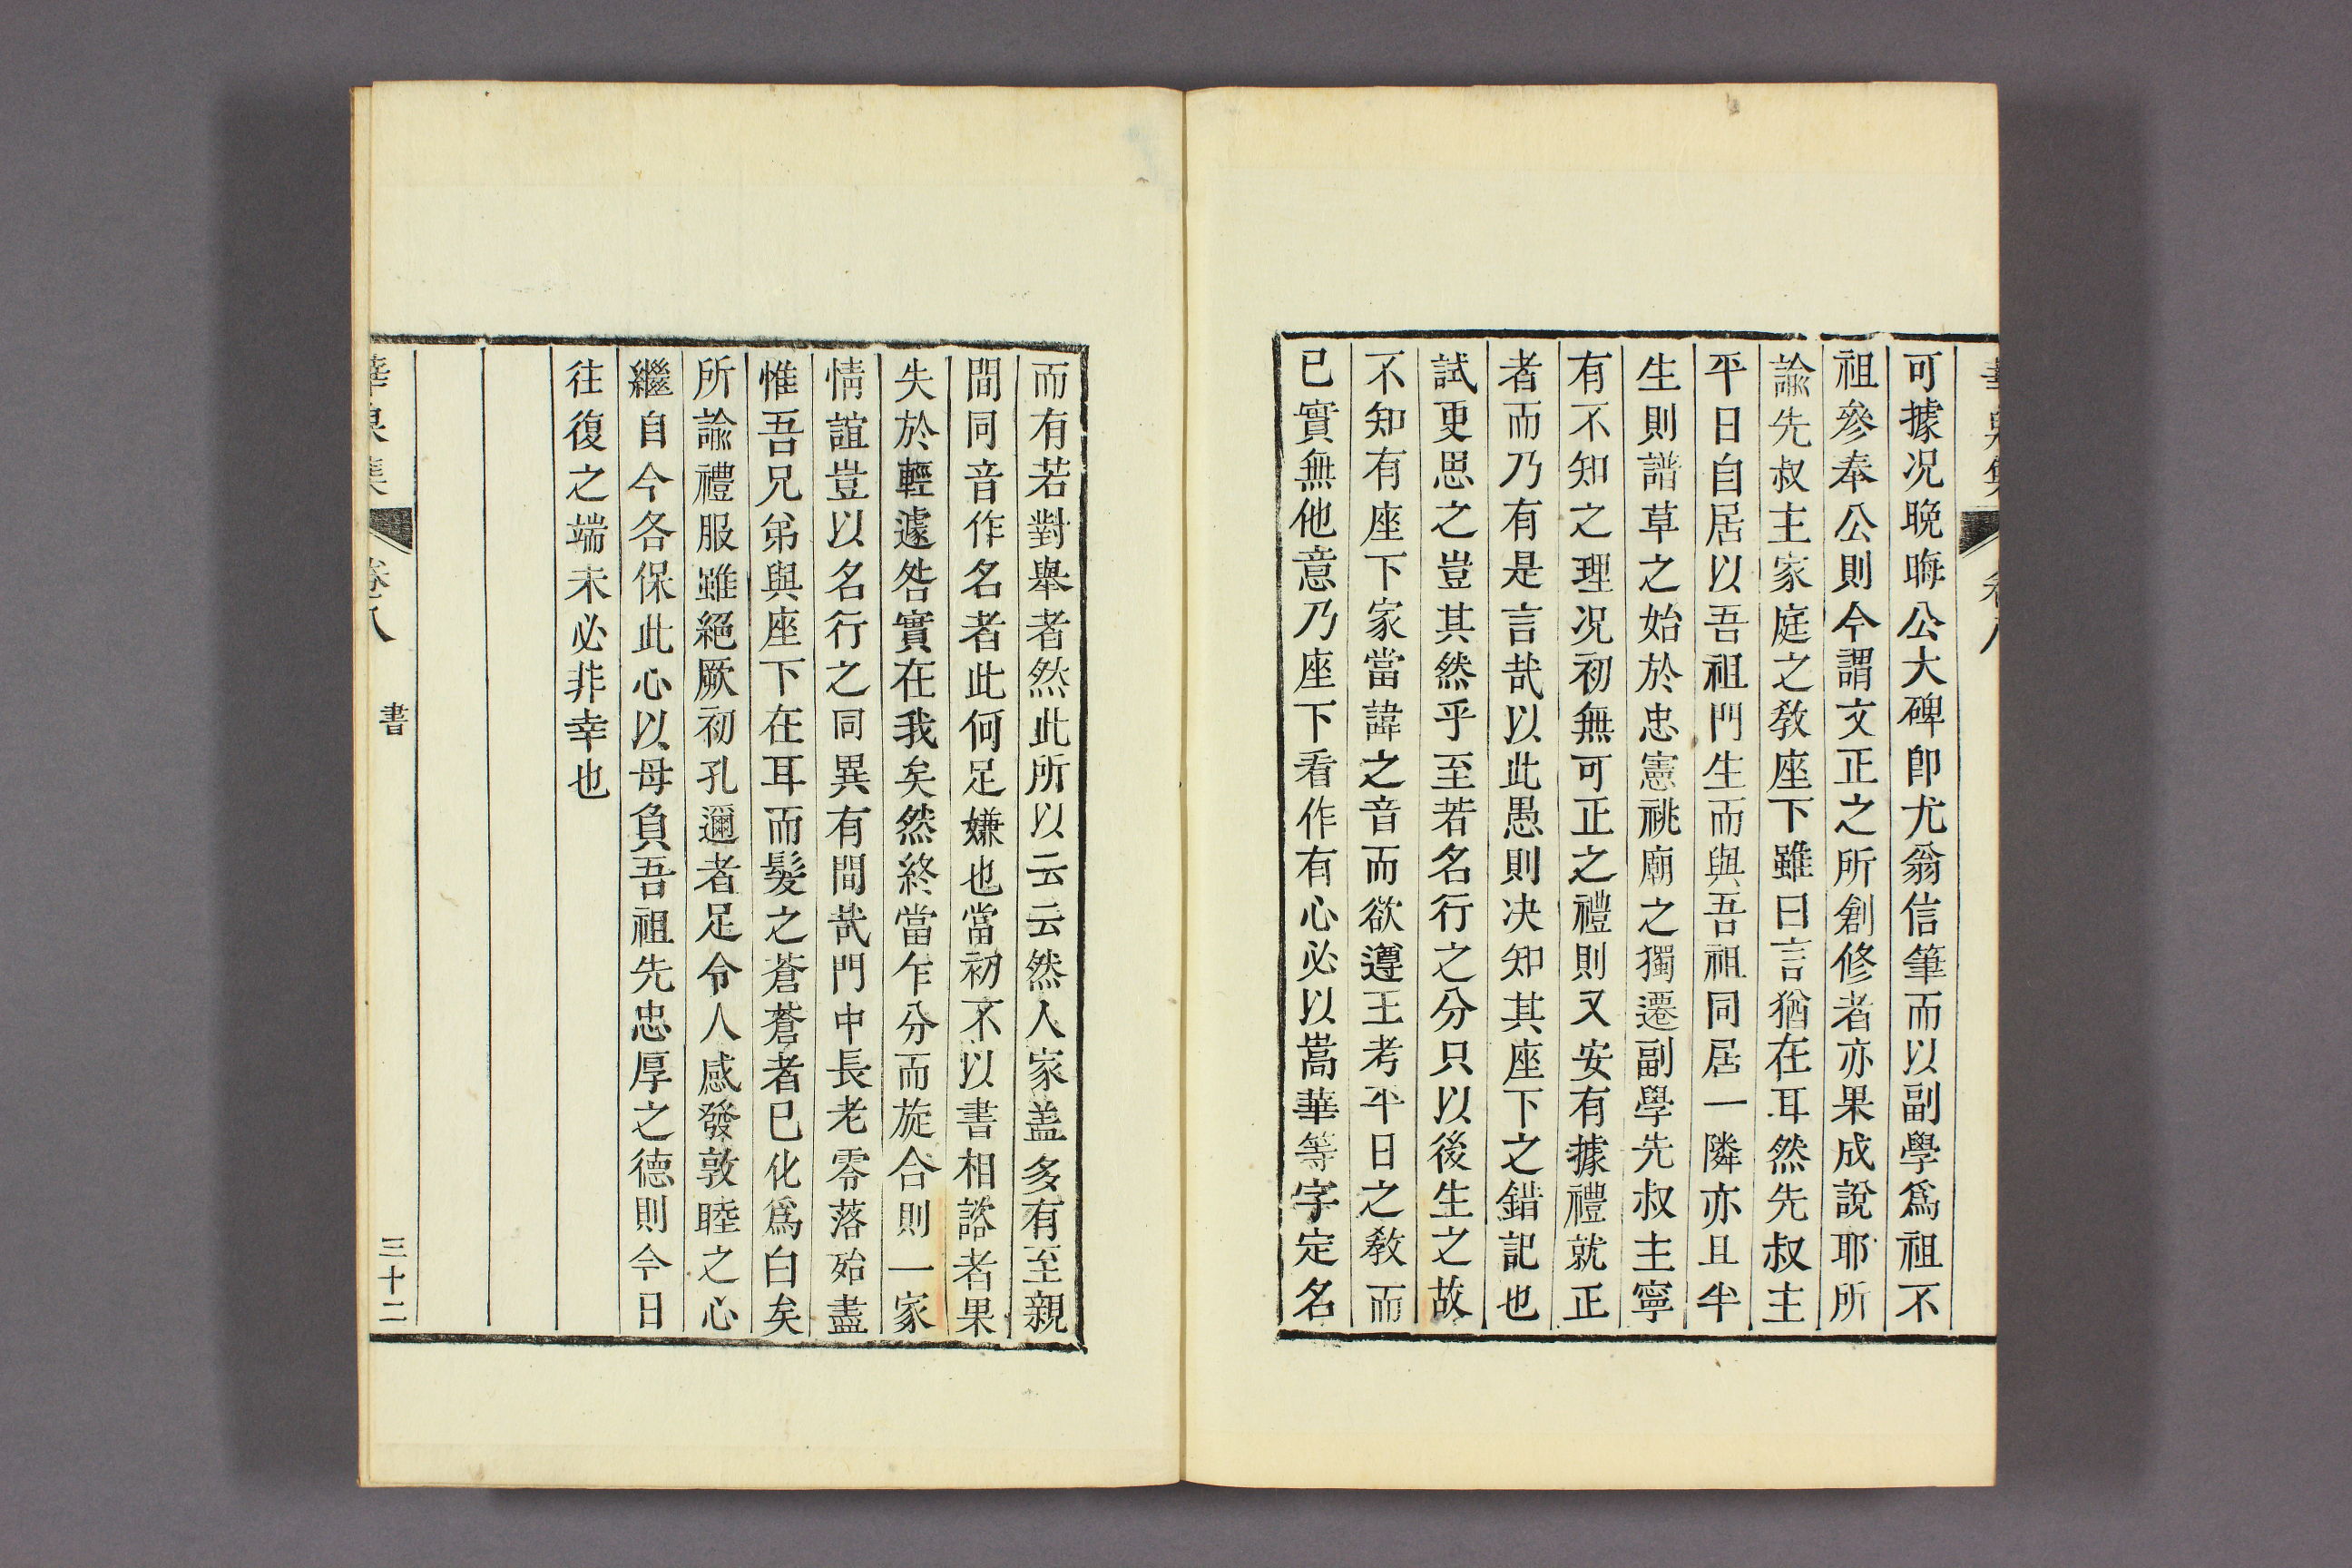 可據况晩晦公大碑卽尤翁信筆而以副學爲祖不
祖參奉公則今謂文正之所創修者亦果成說耶所
諭先叔主家庭之敎座下雖曰言猶在耳然先叔主
平日自居以吾祖門生而與吾祖同居一隣亦且半
生則譜草之始於忠憲祧廟之獨遷副學先叔主寧
有不知之理况初無可正之禮則又安有據禮就正
者而乃有是言哉以此愚則决知其座下之錯記也
試更思之豈其然乎至若名行之分只以後生之故
不知有座下家當諱之音而欲遵王考平日之敎而
已實無他意乃座下看作有心必以嵩華等字定名
而有若對擧者然此所以云云然人家盖多有至親
間同音作名者此何足嫌也當初不以書相諮者果
失於輕遽咎實在我矣然終當乍分而旋合則一家
情誼豈以名行之同異有間哉門中長老零落殆盡
惟吾兄弟與座下在耳而髮之蒼蒼者已化爲白矣
所諭禮服雖絕厥初孔邇者足令人感發敦睦之心
繼自今各保此心以毋負吾祖先忠厚之德則今日
往復之端未必非幸也
華泉集 卷八 書 三十二